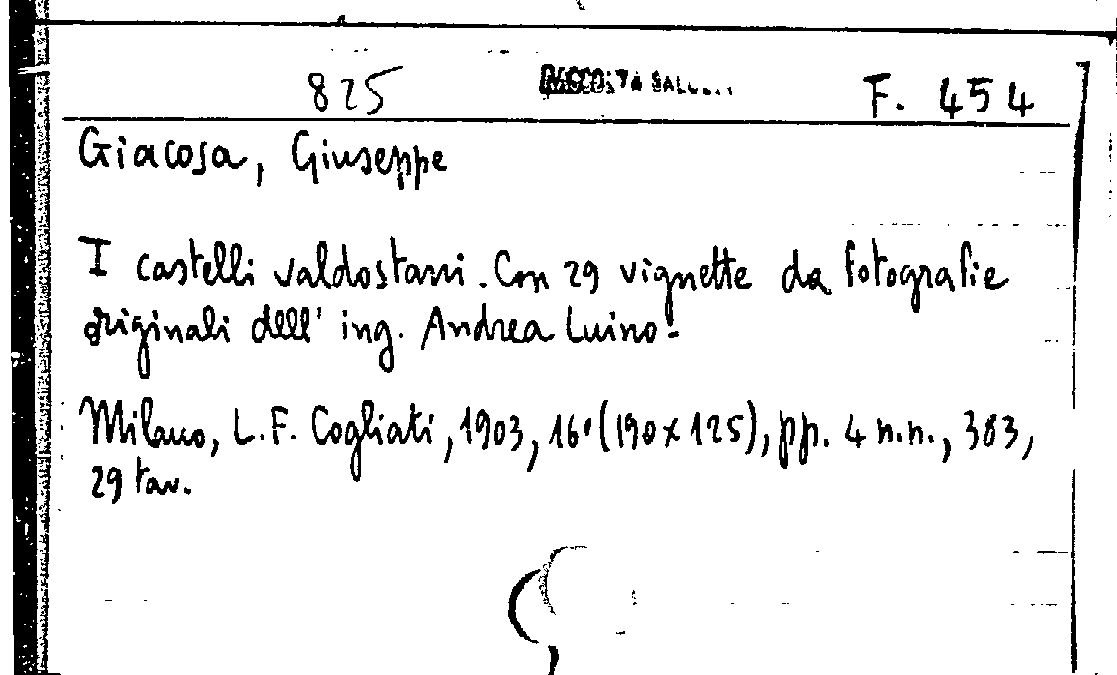 825 RACCOLTA F. 454
Giacosa, Giuseppe
I castelli valdostani. Con 29 vignette da fotografie
originali dell' ing. Andrea Luino.
Milano, L.F. Cogliati, 1903, 16° (190 x 125), pp. 4 n.n., 383,
29 tav.